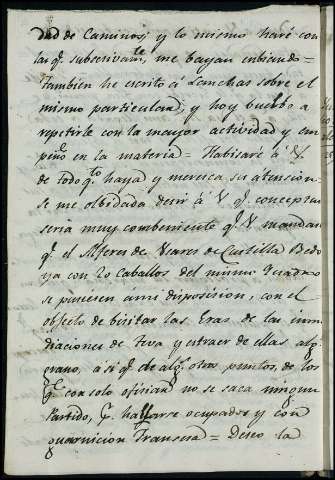 dad de Caminos; y lo mismo haré con
las q.e subcecivam.te me bayan enbiando=
Tambien he escrito á Lanchas sobre el
mismo particular, y hoy buelbo a
repetirle con la mayor actividad y em
peño en la materia= Habisaré á V.
de todo q.to haya y meresca su atencion=
se me olbidaba desir á V. q.e conceptuo
seria muy combeniente q.e V. mandara
q.e el Alferes de Usares de Castilla Bedo
ya con 20 caballos del mismo Quadro
se pusiecen ami disposicion, con el
objecto de bisitar las Eras de las inm
diaciones de Teva y extraer de ellas alg.n
grano, a si q.e de alg.s otros puntos, de los
q.e con solo oficiar no se saca ningun
Partido, p.r hallarse ocupados y con
guarnicion Francesa= Deseo la